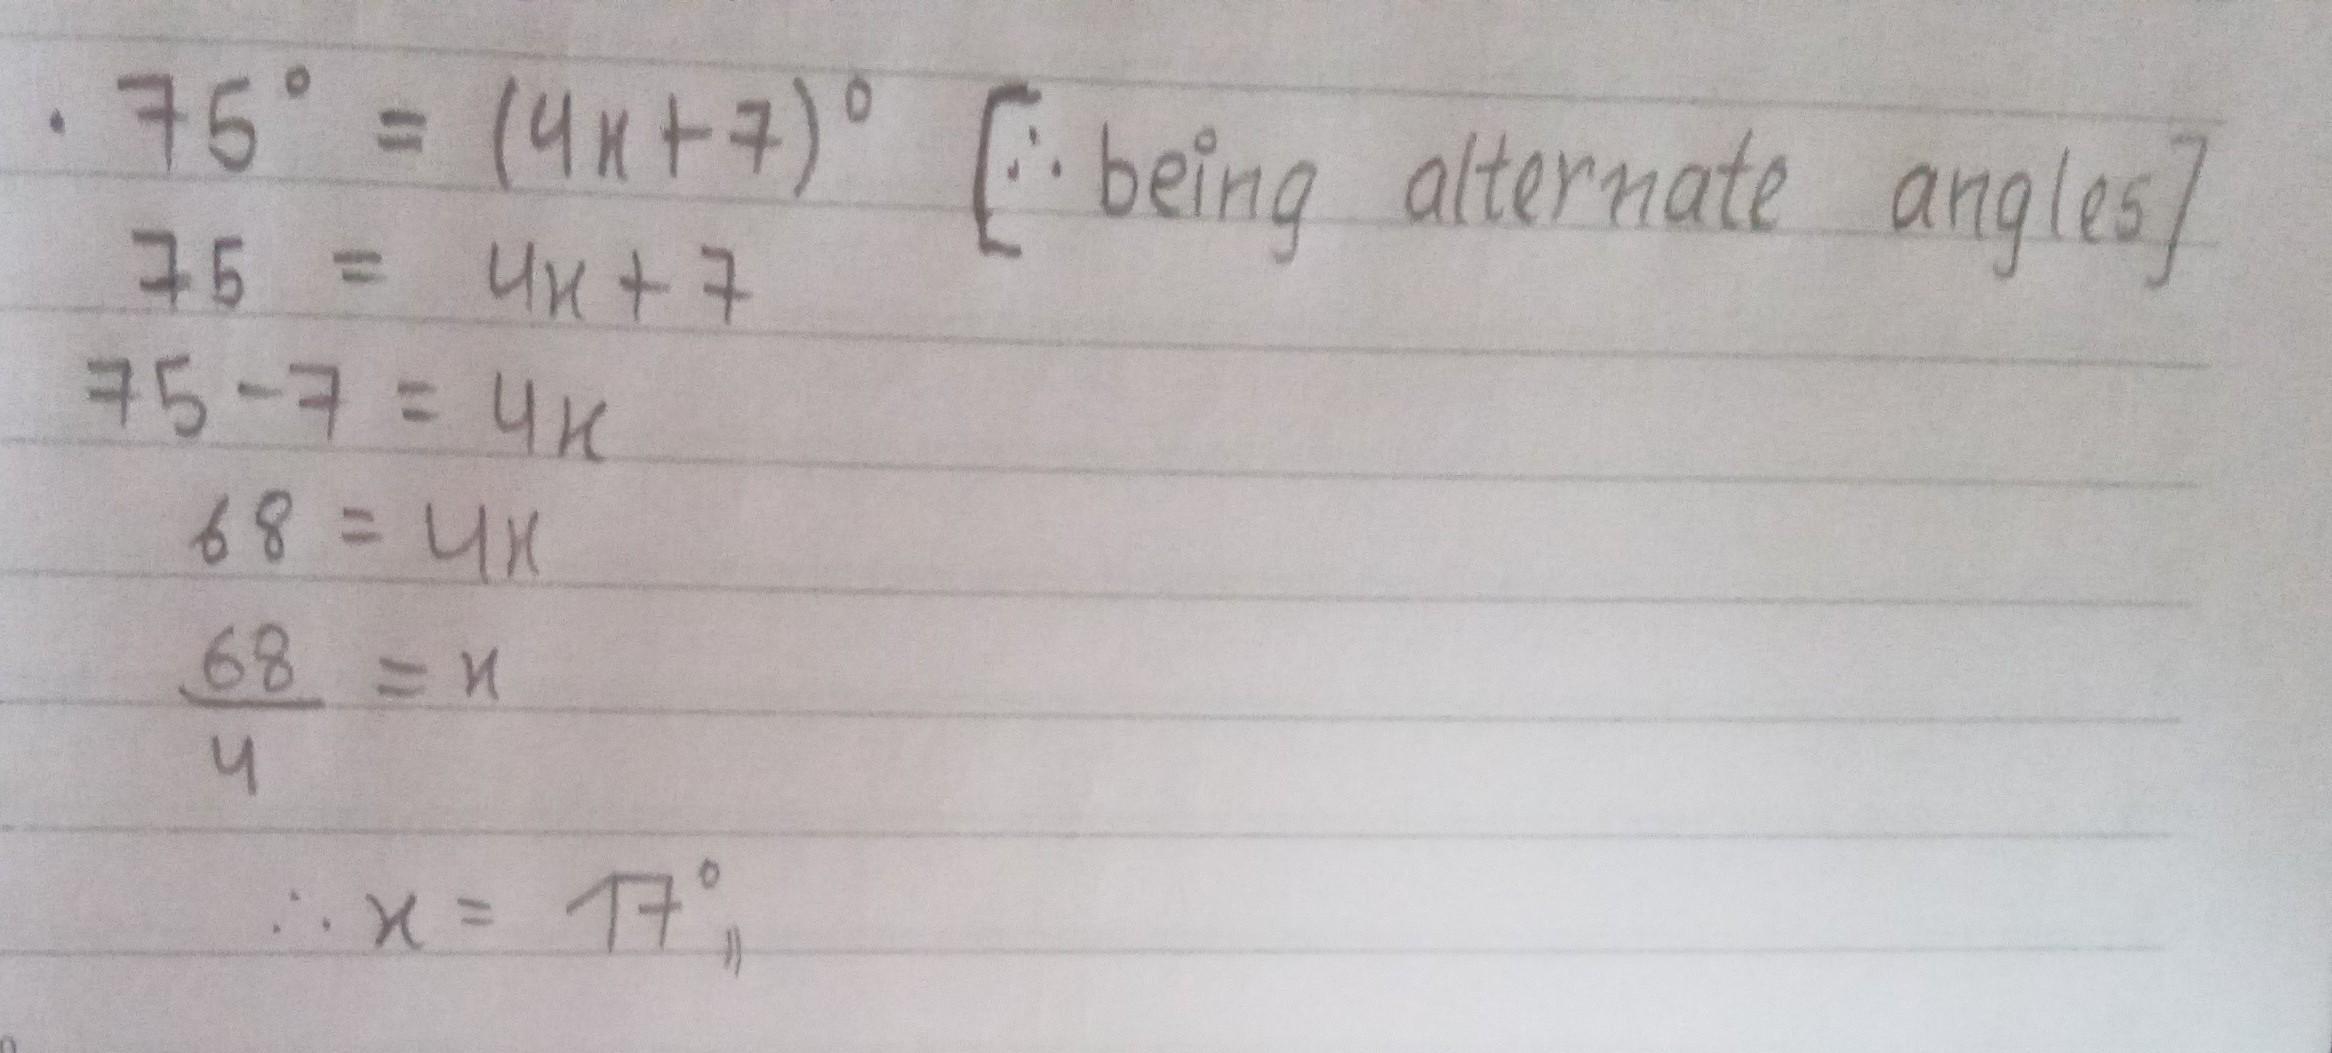 . 75° = (4x+7)° [∴ being alternate angles]
75 = 4x+7
75-7 = 4x
68 = 4x
68/4 = x
∴ x = 17°,,